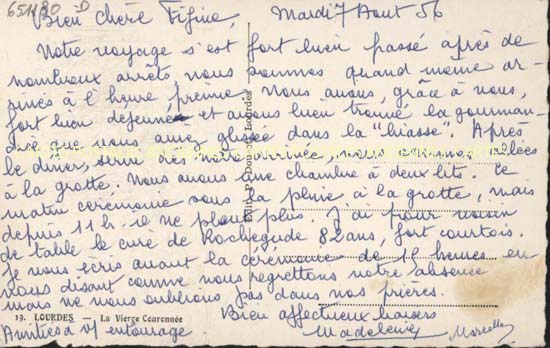 651180 D
Bien chère Fifine, Mardi 7 Aout 56
Notre voyage s'est fort bien passé après de
nombreux arrêts, nous sommes quand même ar-
rivés à l'heure, nous avons, grâce à vous,
fort bien déjeuné et avons bien trouvé la gourman-
dise que vous aviez glissée dans la "liasse". Après
le dîner, servi dès notre arrivée, nous sommes allées
à la grotte. Nous avons une chambre à deux lits. Ce
matin cérémonie sous la pluie à la grotte, mais
depuis 11h. il ne pleut plus. J'ai pour voisin
de table le curé de Rochegude 82 ans, fort courtois.
Je vous écris avant la cérémonie de 15 heures en
vous disant comme nous regrettons votre absence
mais ne vous oublions pas dans nos prières.
Bien affectueux baisers
19. LOURDES — La Vierge Couronnée
Amitiés à vs entourage
Madeleine Marcelle
Edit. P. Doucet Lourdes